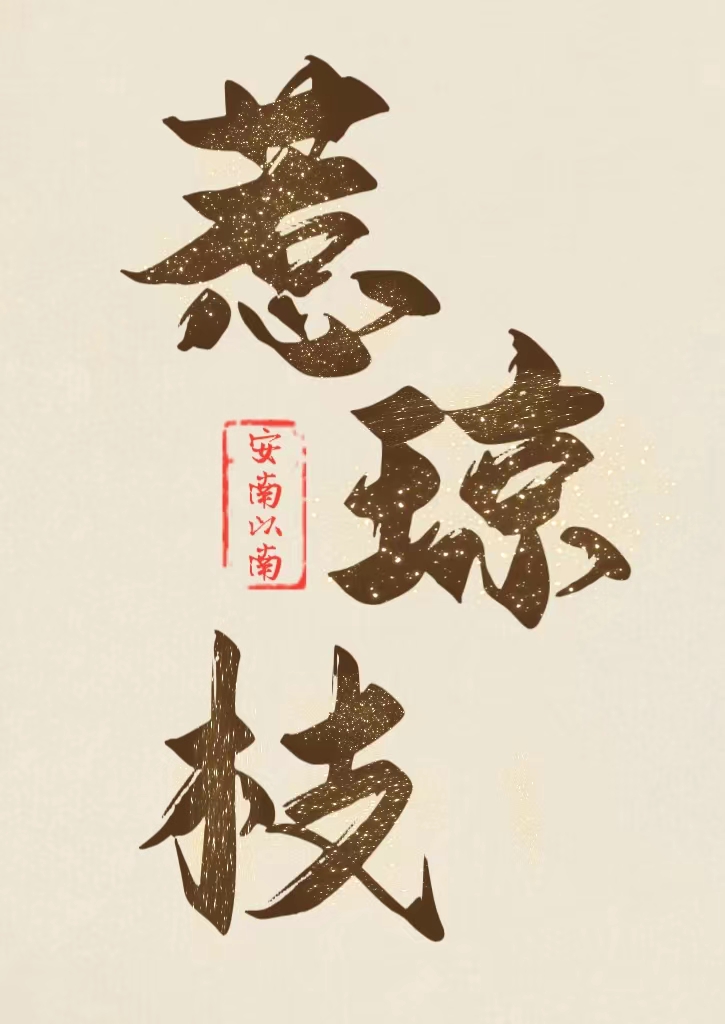 惹琼枝
安南以南